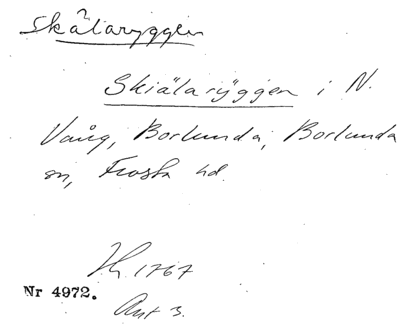 Skälaryggen
Skiälarÿggen i N.
Vång, Borlunda, Borlunda
sn, Frosta hd.
1767
Nr 4972.
Akt 3.